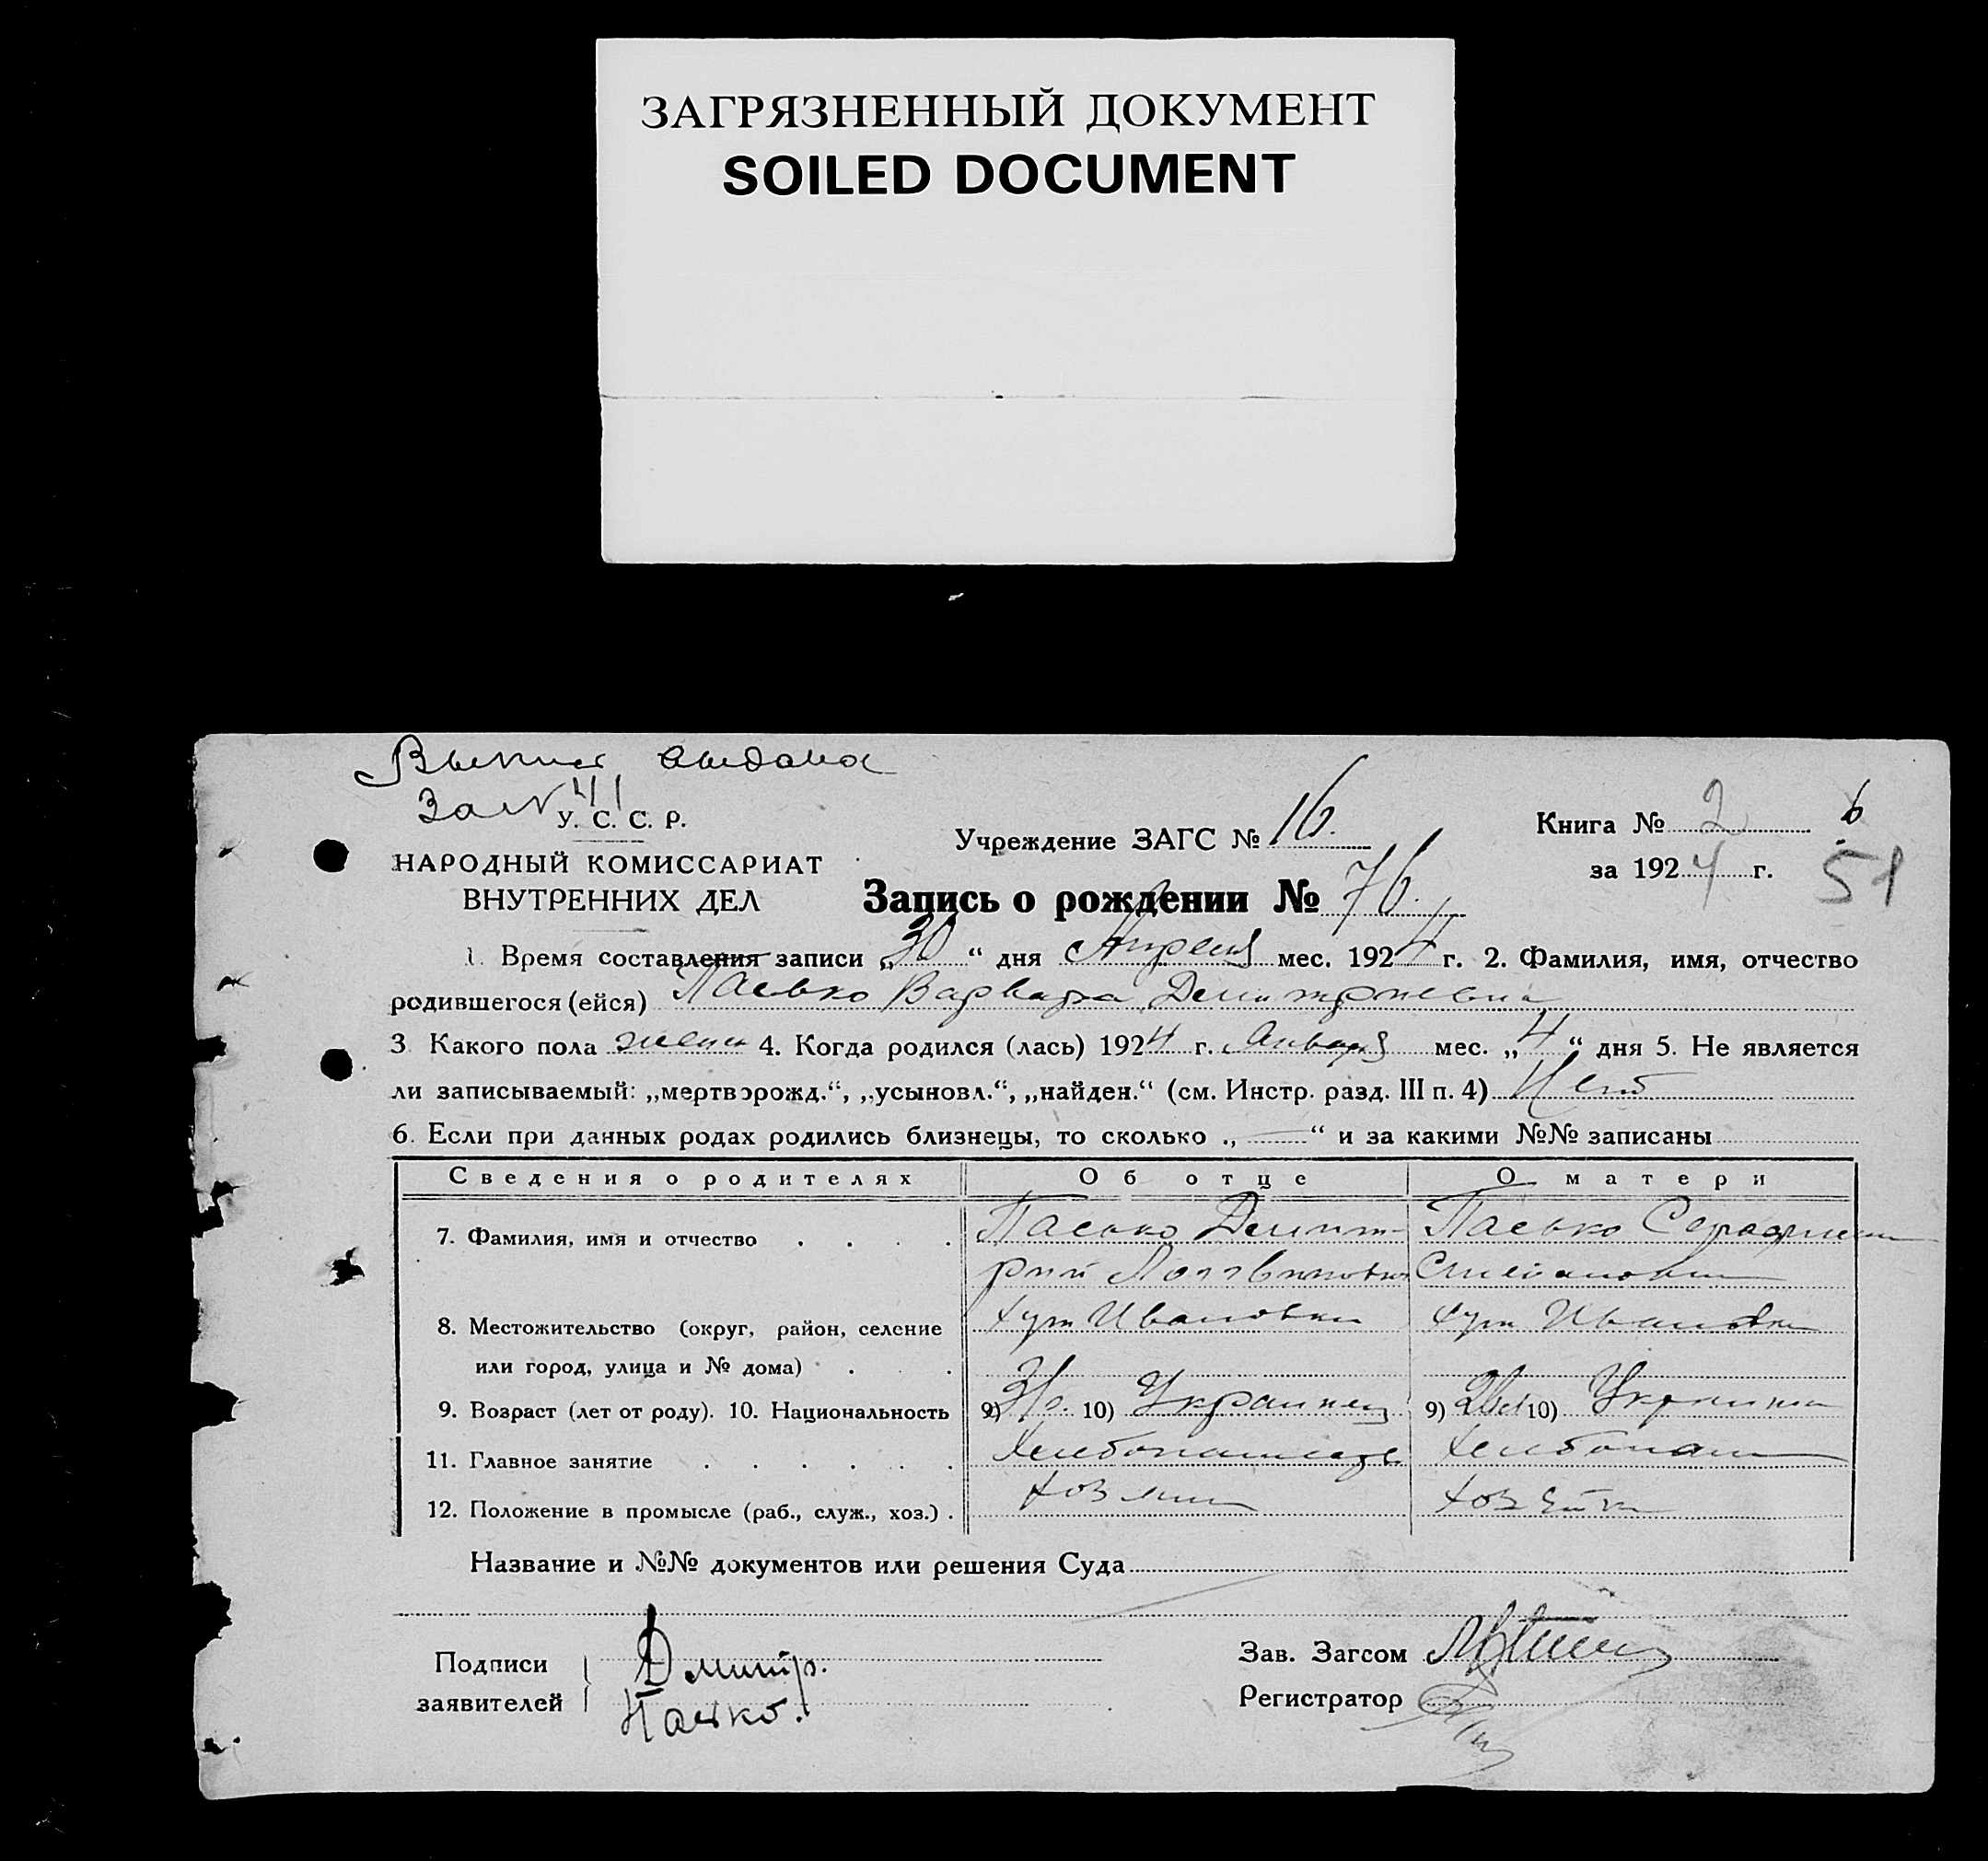 ЗАГРЯЗНЕННЫЙ ДОКУМЕНТ
SOILED DOCUMENT
выдана
За № 41
У. С. С. Р.
НАРОДНЫЙ КОМИССАРИАТ
ВНУТРЕННИХ ДЕЛ
Учреждение ЗАГС № 16.
Книга № 2
за 1924 г.
6
51
Запись о рождении № 76.
1. Время составления записи „30“ дня Апреля мес. 1924 г. 2. Фамилия, имя, отчество
родившегося (ейся) Пасько Варвара Дмитриевна
3. Какого пола женск 4. Когда родился (лась) 1924 г. Января мес. „4“ дня 5. Не является
ли записываемый: „мертворожд.“, „усыновл.“, „найден.“ (см. Инстр. разд. III п. 4) Нет
6. Если при данных родах родились близнецы, то сколько „—“ и за какими №№ записаны
Сведения о родителях Об отце О матери
7. Фамилия, имя и отчество Пасько Димит- Пасько
рий
8. Местожительство (округ, район, селение хут Ивановка хут Ивановка
или город, улица и № дома)
9. Возраст (лет от роду). 10. Национальность 9) 31 г. 10) Украинец 9) 10) Украинка
11. Главное занятие Хлебопашец Хлебопаш
12. Положение в промысле (раб., служ., хоз.) хозяин хозяйка
Название и №№ документов или решения Суда
Подписи заявителей Дмитр.
Пасько.
Зав. Загсом
Регистратор